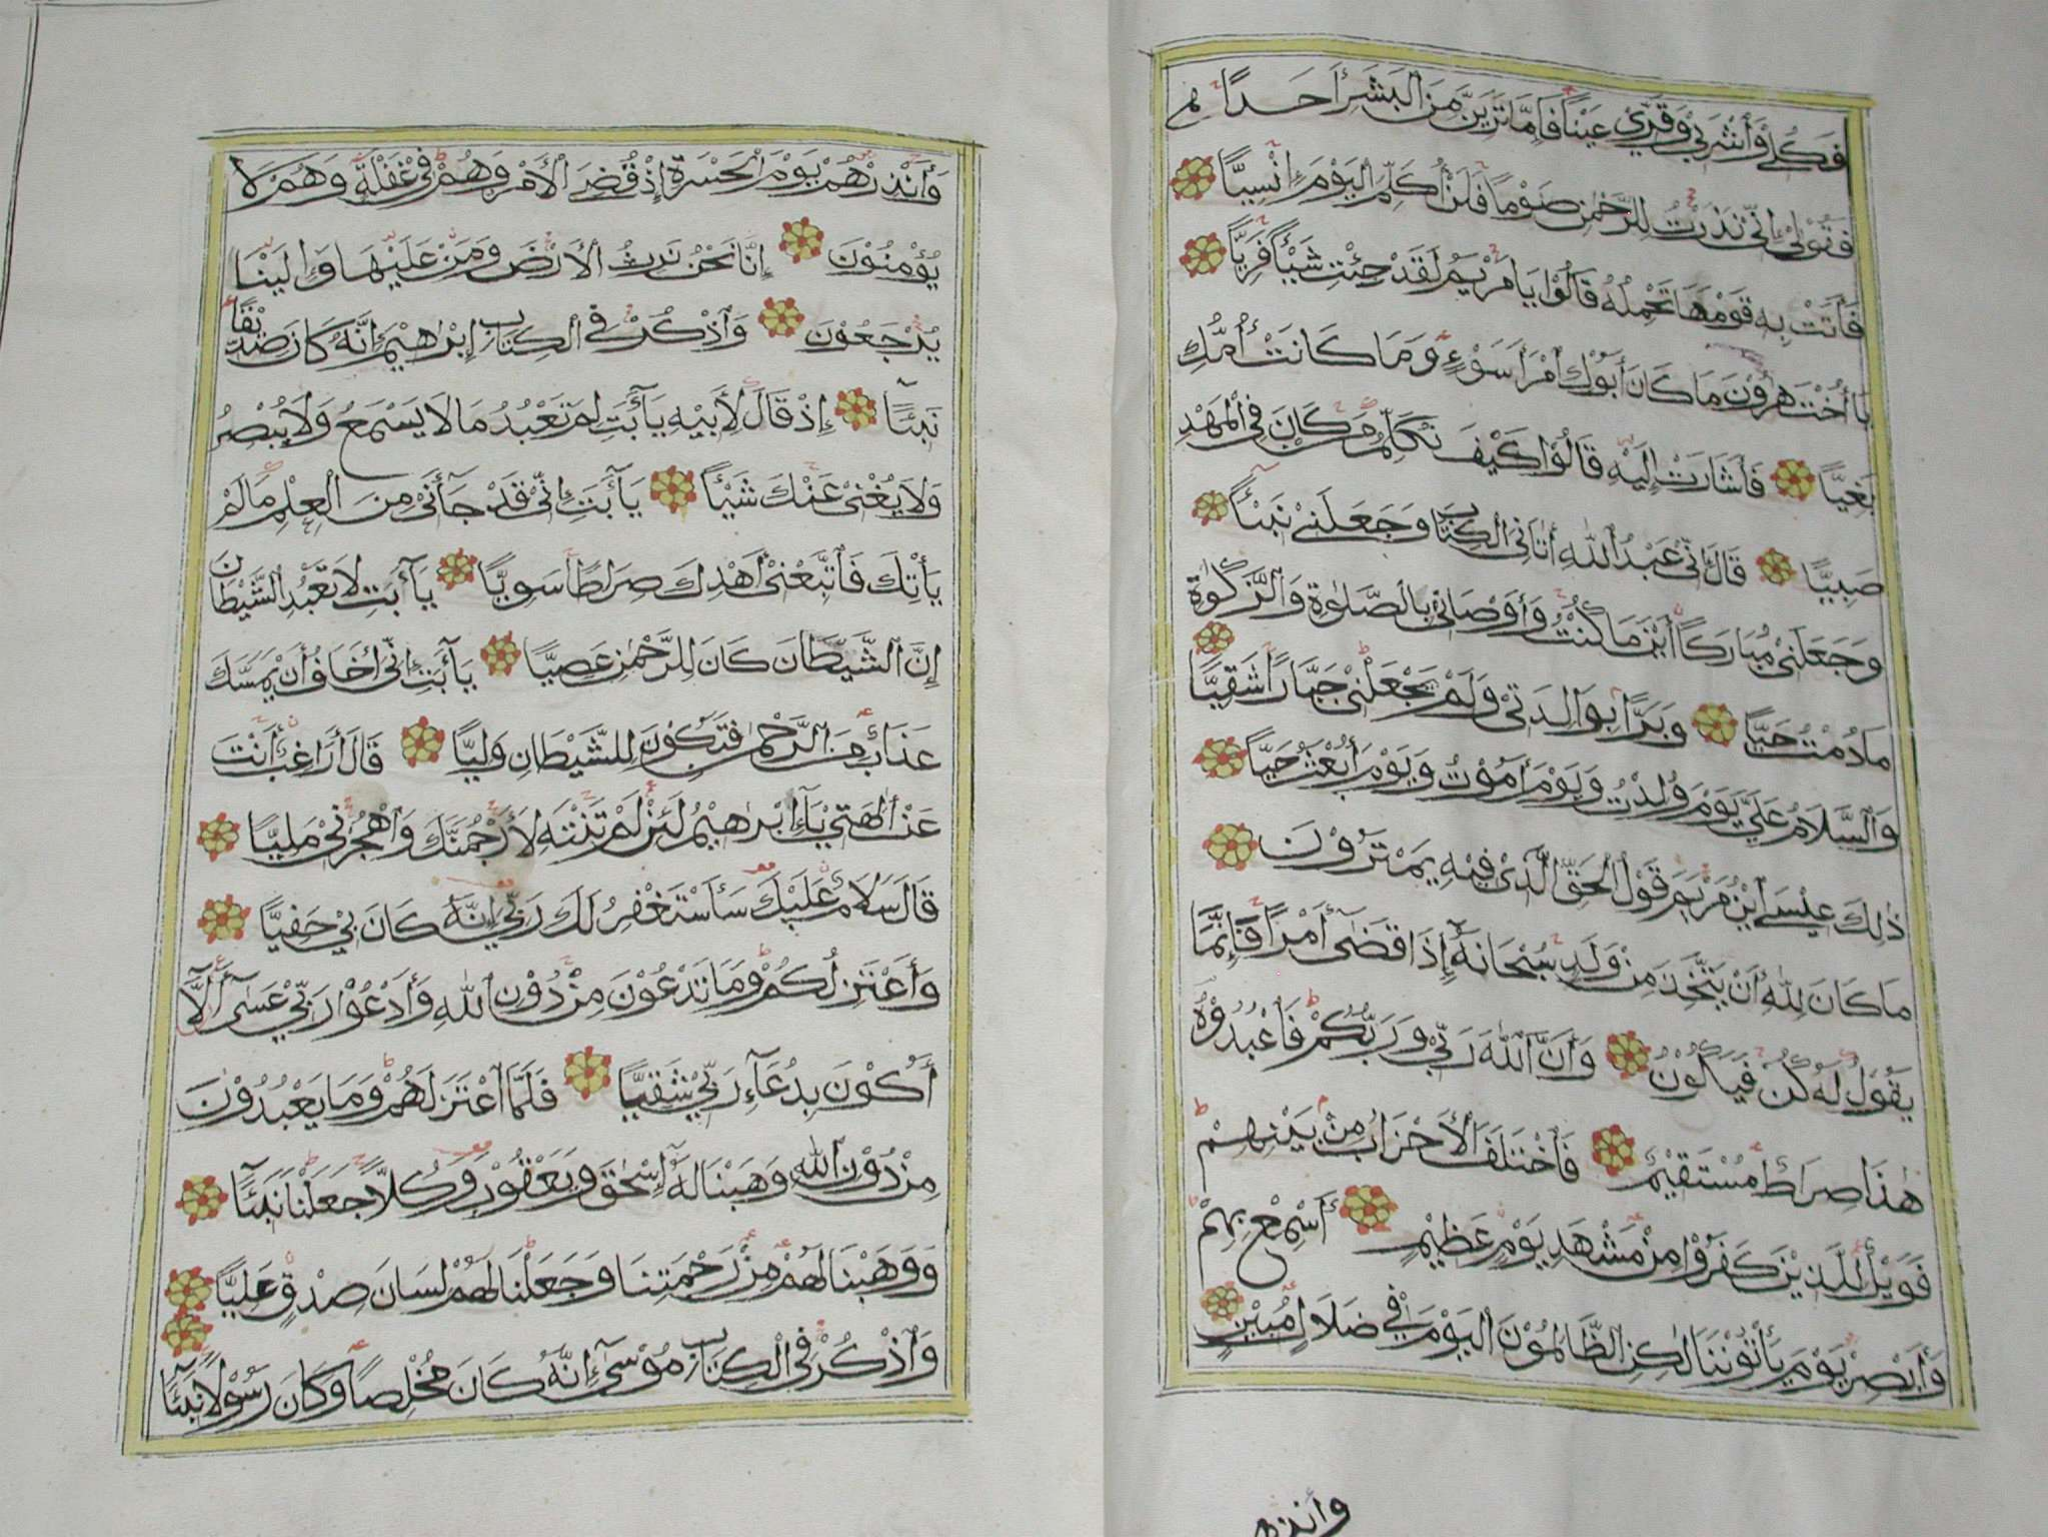 فَكُلِي وَٱشْرَبِي وَقَرِّي عَيْنًا فَإِمَّا تَرَيِنَّ مِنَ ٱلْبَشَرِ أَحَدًا
فَقُوْلِيْ إِنِّيْ نَذَرْتُ لِلرَّحْمٰنِ صَوْمًا فَلَنْ أُكَلِّمَ ٱلْيَوْمَ إِنْسِيًّا
فَأَتَتْ بِهِ قَوْمَهَا تَحْمِلُهُ قَالُوْا يَا مَرْيَمُ لَقَدْ جِئْتِ شَيْـًٔا فَرِيًّا
يَا أُخْتَ هٰرُوْنَ مَا كَانَ أَبُوْكِ ٱمْرَأَ سَوْءٍ وَمَا كَانَتْ أُمُّكِ
بَغِيًّا فَأَشَارَتْ إِلَيْهِ قَالُوْا كَيْفَ نُكَلِّمُ مَنْ كَانَ فِي ٱلْمَهْدِ
صَبِيًّا قَالَ إِنِّيْ عَبْدُ ٱللّٰهِ أٰتَانِيَ ٱلْكِتَابَ وَجَعَلَنِيْ نَبِيْـًٔا
وَجَعَلَنِيْ مُبَارَكًا أَيْنَ مَا كُنْتُ وَأَوْصَانِيْ بِالصَّلٰوةِ وَٱلزَّكٰوةِ
مَا دُمْتُ حَيًّا وَبَرًّا بِوَالِدَتِيْ وَلَمْ يَجْعَلْنِيْ جَبَّارًا شَقِيًّا
وَٱلسَّلَامُ عَلَيَّ يَوْمَ وُلِدْتُ وَيَوْمَ أَمُوْتُ وَيَوْمَ أُبْعَثُ حَيًّا
ذٰلِكَ عِيْسَى ٱبْنُ مَرْيَمَ قَوْلُ ٱلْحَقِّ ٱلَّذِيْ فِيْهِ يَمْتَرُوْنَ
مَا كَانَ لِلّٰهِ أَنْ يَتَّخِذَ مِنْ وَلَدٍ سُبْحَانَهُ إِذَا قَضٰى أَمْرًا فَإِنَّمَا
يَقُوْلُ لَهُ كُنْ فَيَكُوْنُ وَأَنَّ ٱللّٰهَ رَبِّيْ وَرَبُّكُمْ فَاعْبُدُوْهُ
هٰذَا صِرَاطٌ مُسْتَقِيْمٌ فَاخْتَلَفَ ٱلْأَحْزَابُ مِنْ بَيْنِهِمْ
فَوَيْلٌ لِلَّذِيْنَ كَفَرُوْا مِنْ مَشْهَدِ يَوْمٍ عَظِيْمٍ أَسْمِعْ بِهِمْ
وَأَبْصِرْ يَوْمَ يَأْتُوْنَنَا لٰكِنِ ٱلظَّالِمُوْنَ ٱلْيَوْمَ فِيْ ضَلَالٍ مُبِيْنٍ
وأنذرهم
وَأَنْذِرْهُمْ يَوْمَ ٱلْحَسْرَةِ إِذْ قُضِيَ ٱلْأَمْرُ وَهُمْ فِيْ غَفْلَةٍ وَهُمْ لَا
يُؤْمِنُوْنَ إِنَّا نَحْنُ نَرِثُ ٱلْأَرْضَ وَمَنْ عَلَيْهَا وَإِلَيْنَا
يُرْجَعُوْنَ وَٱذْكُرْ فِي ٱلْكِتَابِ إِبْرٰهِيْمَ إِنَّهُ كَانَ صِدِّيْقًا
نَبِيْـًٔا إِذْ قَالَ لِأَبِيْهِ يَآ أَبَتِ لِمَ تَعْبُدُ مَا لَا يَسْمَعُ وَلَا يُبْصِرُ
وَلَا يُغْنِيْ عَنْكَ شَيْـًٔا يَآ أَبَتِ إِنِّيْ قَدْ جَآءَنِيْ مِنَ ٱلْعِلْمِ مَا لَمْ
يَأْتِكَ فَاتَّبِعْنِيْ أَهْدِكَ صِرَاطًا سَوِيًّا يَآ أَبَتِ لَا تَعْبُدِ ٱلشَّيْطَانَ
إِنَّ ٱلشَّيْطَانَ كَانَ لِلرَّحْمٰنِ عَصِيًّا يَآ أَبَتِ إِنِّيْ أَخَافُ أَنْ يَمَسَّكَ
عَذَابٌ مِنَ ٱلرَّحْمٰنِ فَتَكُوْنَ لِلشَّيْطَانِ وَلِيًّا قَالَ أَرَاغِبٌ أَنْتَ
عَنْ أٰلِهَتِيْ يَآ إِبْرٰهِيْمُ لَئِنْ لَمْ تَنْتَهِ لَأَرْجُمَنَّكَ وَٱهْجُرْنِيْ مَلِيًّا
قَالَ سَلَامٌ عَلَيْكَ سَأَسْتَغْفِرُ لَكَ رَبِّيْ إِنَّهُ كَانَ بِيْ حَفِيًّا
وَأَعْتَزِلُكُمْ وَمَا تَدْعُوْنَ مِنْ دُوْنِ ٱللّٰهِ وَأَدْعُوْا رَبِّيْ عَسٰى أَلَّا
أَكُوْنَ بِدُعَآءِ رَبِّيْ شَقِيًّا فَلَمَّا ٱعْتَزَلَهُمْ وَمَا يَعْبُدُوْنَ
مِنْ دُوْنِ ٱللّٰهِ وَهَبْنَا لَهُ إِسْحٰقَ وَيَعْقُوْبَ وَكُلًّا جَعَلْنَا نَبِيْـًٔا
وَوَهَبْنَا لَهُمْ مِنْ رَحْمَتِنَا وَجَعَلْنَا لَهُمْ لِسَانَ صِدْقٍ عَلِيًّا
وَٱذْكُرْ فِي ٱلْكِتَابِ مُوْسٰى إِنَّهُ كَانَ مُخْلِصًا وَكَانَ رَسُوْلًا نَبِيْـًٔا